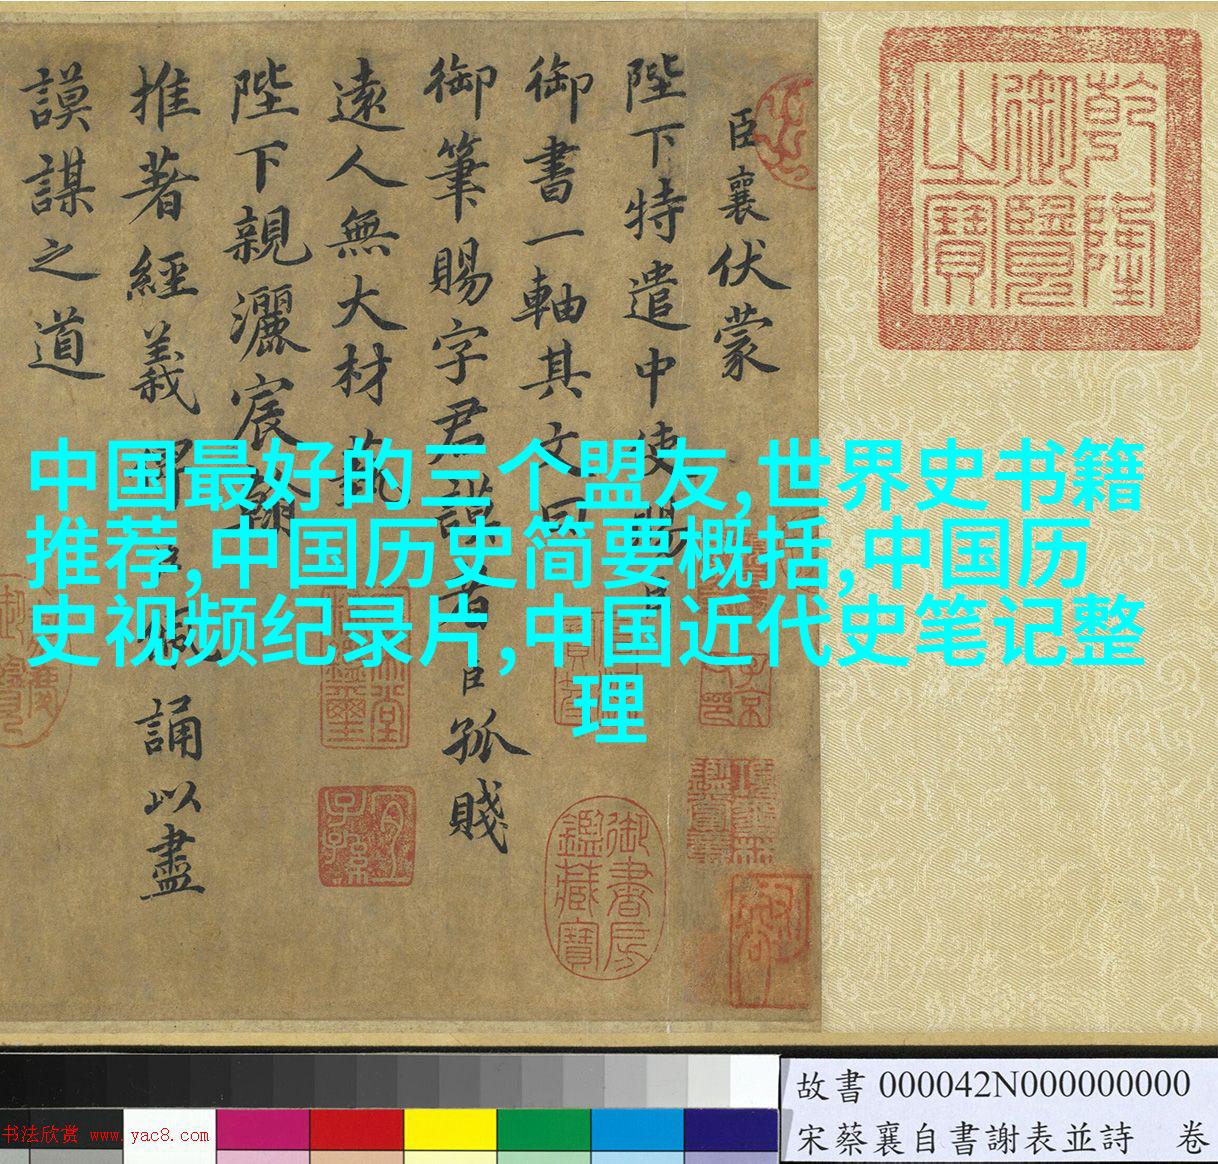 臣襄伏蒙
陛下特遣中使賜臣
御書一軸其文曰
御筆賜字君謨者臣孤賤
遠人無大材藝
陛下親灑宸翰
推著經義
誦以盡
謨謀之道
乾隆
御覽
之寶
御書房
鑑藏寶
宜
子孫
中国最好的三个盟友,世界史书籍
推荐,中国历史简要概括,中国历
史视频纪录片,中国近代史笔记整
理
故書 000042N000000000
宋蔡襄自書謝表並詩 卷
书法欣赏 www.yac8.com